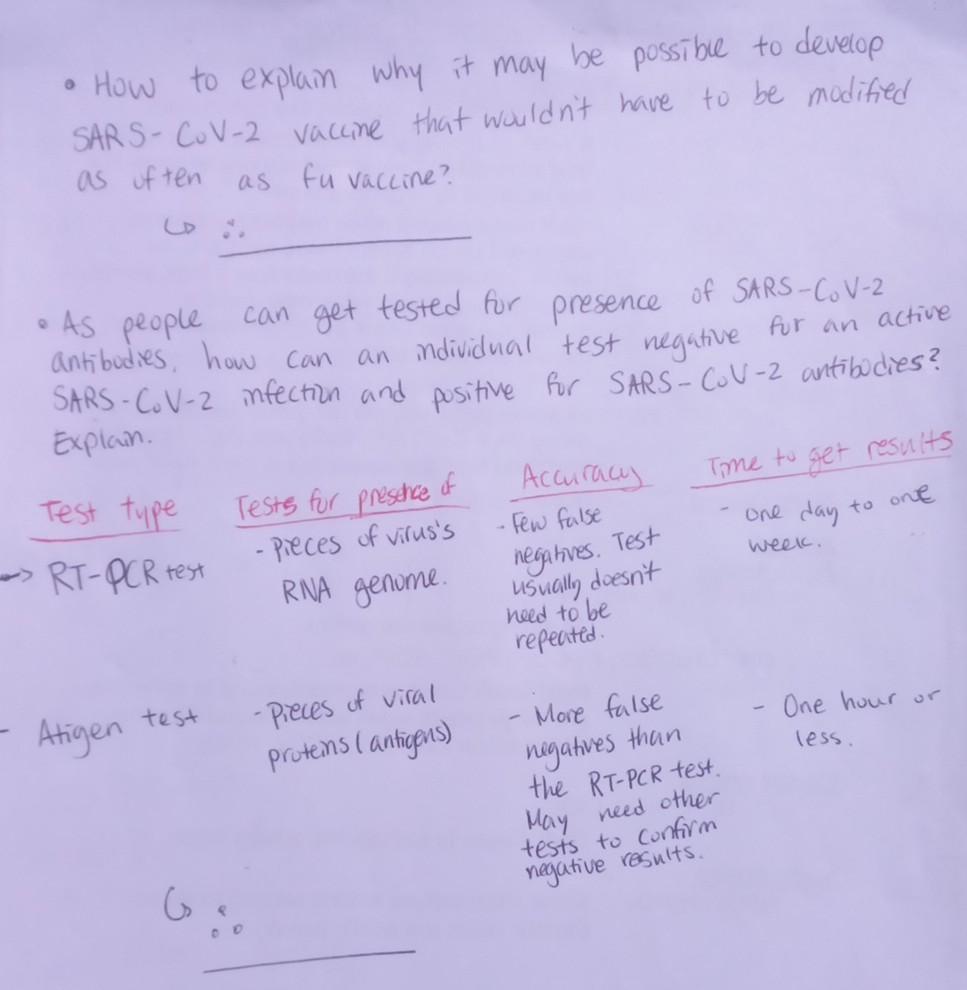 • How to explain why it may be possible to develop
SARS-CoV-2 vaccine that wouldn't have to be modified
as often as fu vaccine?
↪ ∴
• As people can get tested for presence of SARS-CoV-2
antibodies, how can an individual test negative for an active
SARS-CoV-2 infection and positive for SARS-CoV-2 antibodies?
Explain.
Test type
Tests for presence of
Accuracy
Time to get results
→ RT-PCR test
- Pieces of virus's
RNA genome.
- Few false
negatives. Test
usually doesn't
need to be
repeated.
- one day to one
week.
- Atigen test
- Pieces of viral
proteins (antigens)
- More false
negatives than
the RT-PCR test.
May need other
tests to confirm
negative results.
- One hour or
less.
↪ ∴